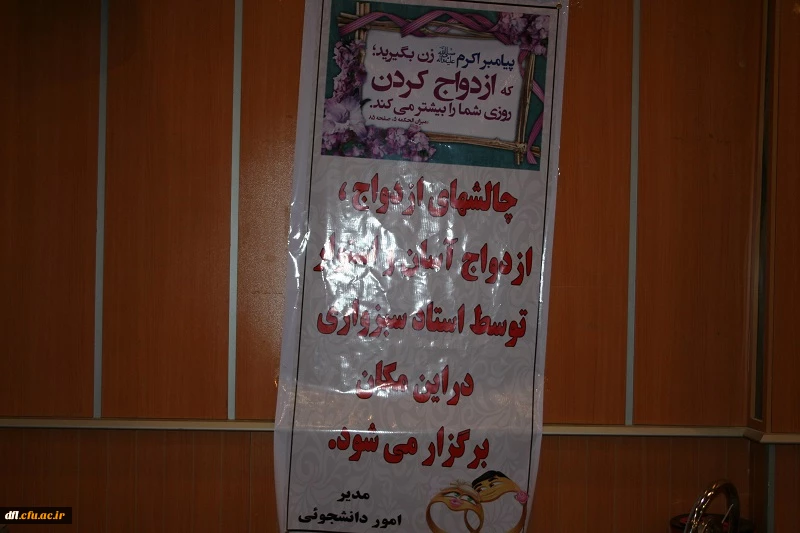 پیامبر اکرم ﷺ زن بگیرید؛
که ازدواج کردن
روزی شما را بیشتر می کند.
میزان الحکمه ۵، صفحه ۸۵
چالشهای ازدواج ،
ازدواج آسان
توسط استاد سبزواری
دراین مکان
برگزار می شود.
مدیر
امور دانشجوئی
dfl.cfu.ac.ir